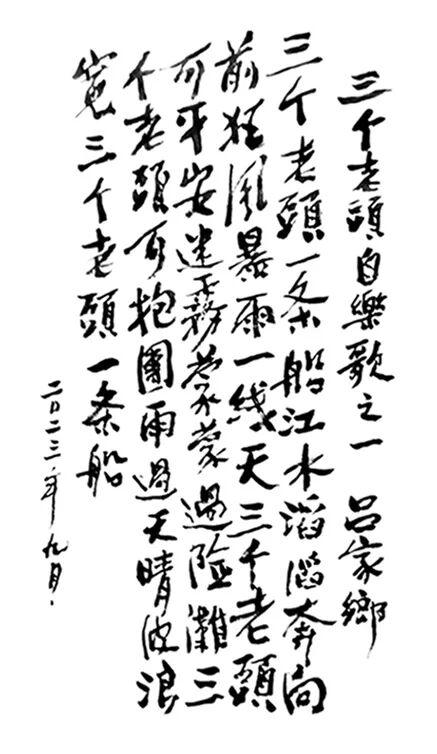 三个老頭自樂歌之一 吕家鄉
三个老頭一条船江水滔滔奔向
前狂風暴雨一线天三个老頭
可平安迷霧蒙蒙過险灘三
个老頭可抱團雨過天晴波浪
寬三个老頭一条船
二〇二三年九月.